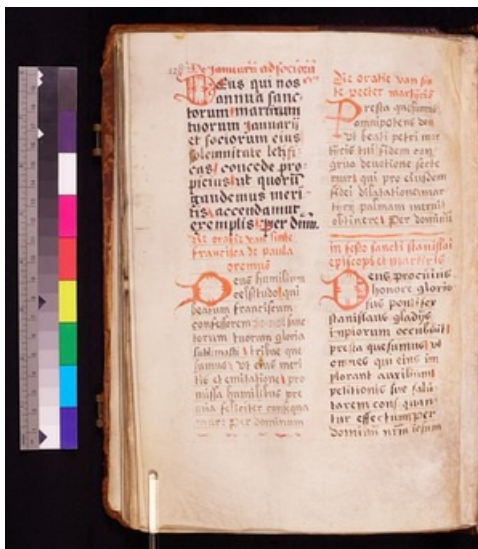 De Januarii ad sociorũ
Deus qui nos
annua sanc
torum martirum
tuorum Januarij
et sociorum eius
solemnitate letifi
cas concede pro
picius ut quorũ
gaudemus meri
tis accendamur
exemplis per dñm.
Die oratie van sinte
francisca de paula
oremus
Deus humilium
celsitudo qui
beatum franciscum
confessorem sanc
torum tuorum gloria
sublimasti tribue que
sumus ut eius meri
tis et imitatione pro
missa humilibus pre
mia feliciter consequa
mur Per dominum
Die oratie van sin
te peeter martiris
Presta quesumus
omnipotens deus
ut beati petri mar
tiris tui fidem con
grua devotione secte
mur qui pro eiusdem
fidei dilatatione mar
tirij palmam meruit
obtinere Per dominũ
in festo sancti stanislai
episcopi et martiris
Deus pro cuius
honore glorio
sus pontifex
stanislaus gladijs
impiorum occubuit
presta quesumus ut
omnes qui eius im
plorant auxilium
petitionis sue salu
tarem consequan
tur effectum per
dominum nrm iesum